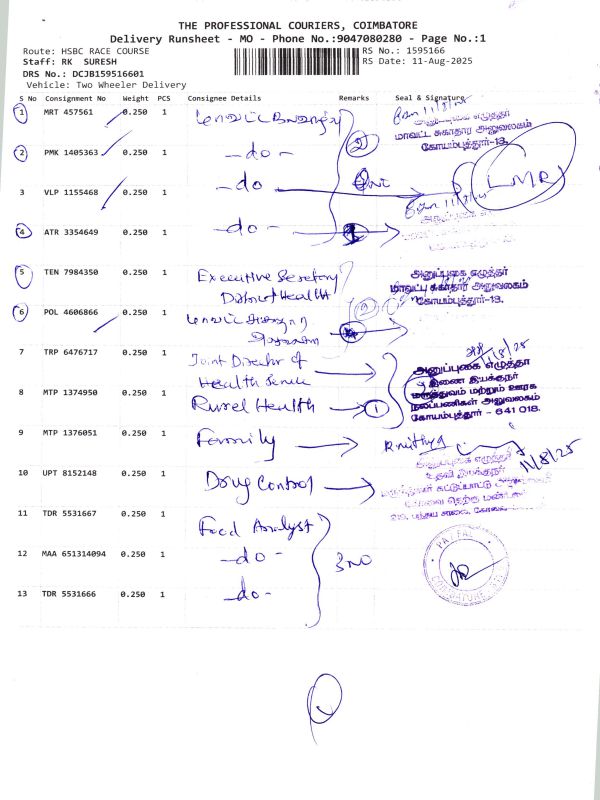 THE PROFESSIONAL COURIERS, COIMBATORE
Delivery Runsheet - MO - Phone No.:9047080280 - Page No.:1
Route: HSBC RACE COURSE
RS No.: 1595166
Staff: RK SURESH
RS Date: 11-Aug-2025
DRS No.: DCJB159516601
Vehicle: Two Wheeler Delivery
S No Consignment No Weight PCS Consignee Details Remarks Seal & Signature
1 MRT 457561 0.250 1
அனுப்புகை எழுத்தர்
மாவட்ட சுகாதார அலுவலகம்
கோயம்புத்தூர்-18.
2 PMK 1405363 0.250 1 -do-
3 VLP 1155468 0.250 1 -do
4 ATR 3354649 0.250 1 -do-
5 TEN 7984350 0.250 1 Executive Secretary
District Health
அனுப்புகை எழுத்தர்
மாவட்ட சுகாதார அலுவலகம்
கோயம்புத்தூர்-18.
6 POL 4606866 0.250 1
7 TRP 6476717 0.250 1 Joint Director of
Health Service
அனுப்புகை எழுத்தர்
இணை இயக்குநர்
மருத்துவம் மற்றும் ஊரக
நலப்பணிகள் அலுவலகம்
கோயம்புத்தூர் - 641 018.
8 MTP 1374950 0.250 1 Rural Health 1
9 MTP 1376051 0.250 1 Family
11/8/25
10 UPT 8152148 0.250 1 Drug Control
11 TDR 5531667 0.250 1 Food Analyst
12 MAA 651314094 0.250 1 -do- 3 NO
13 TDR 5531666 0.250 1 -do-